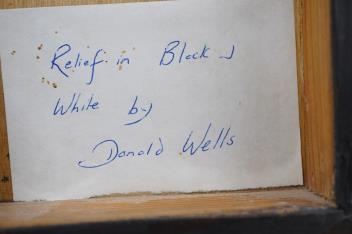 Relief in Black &
White by
Donald Wells